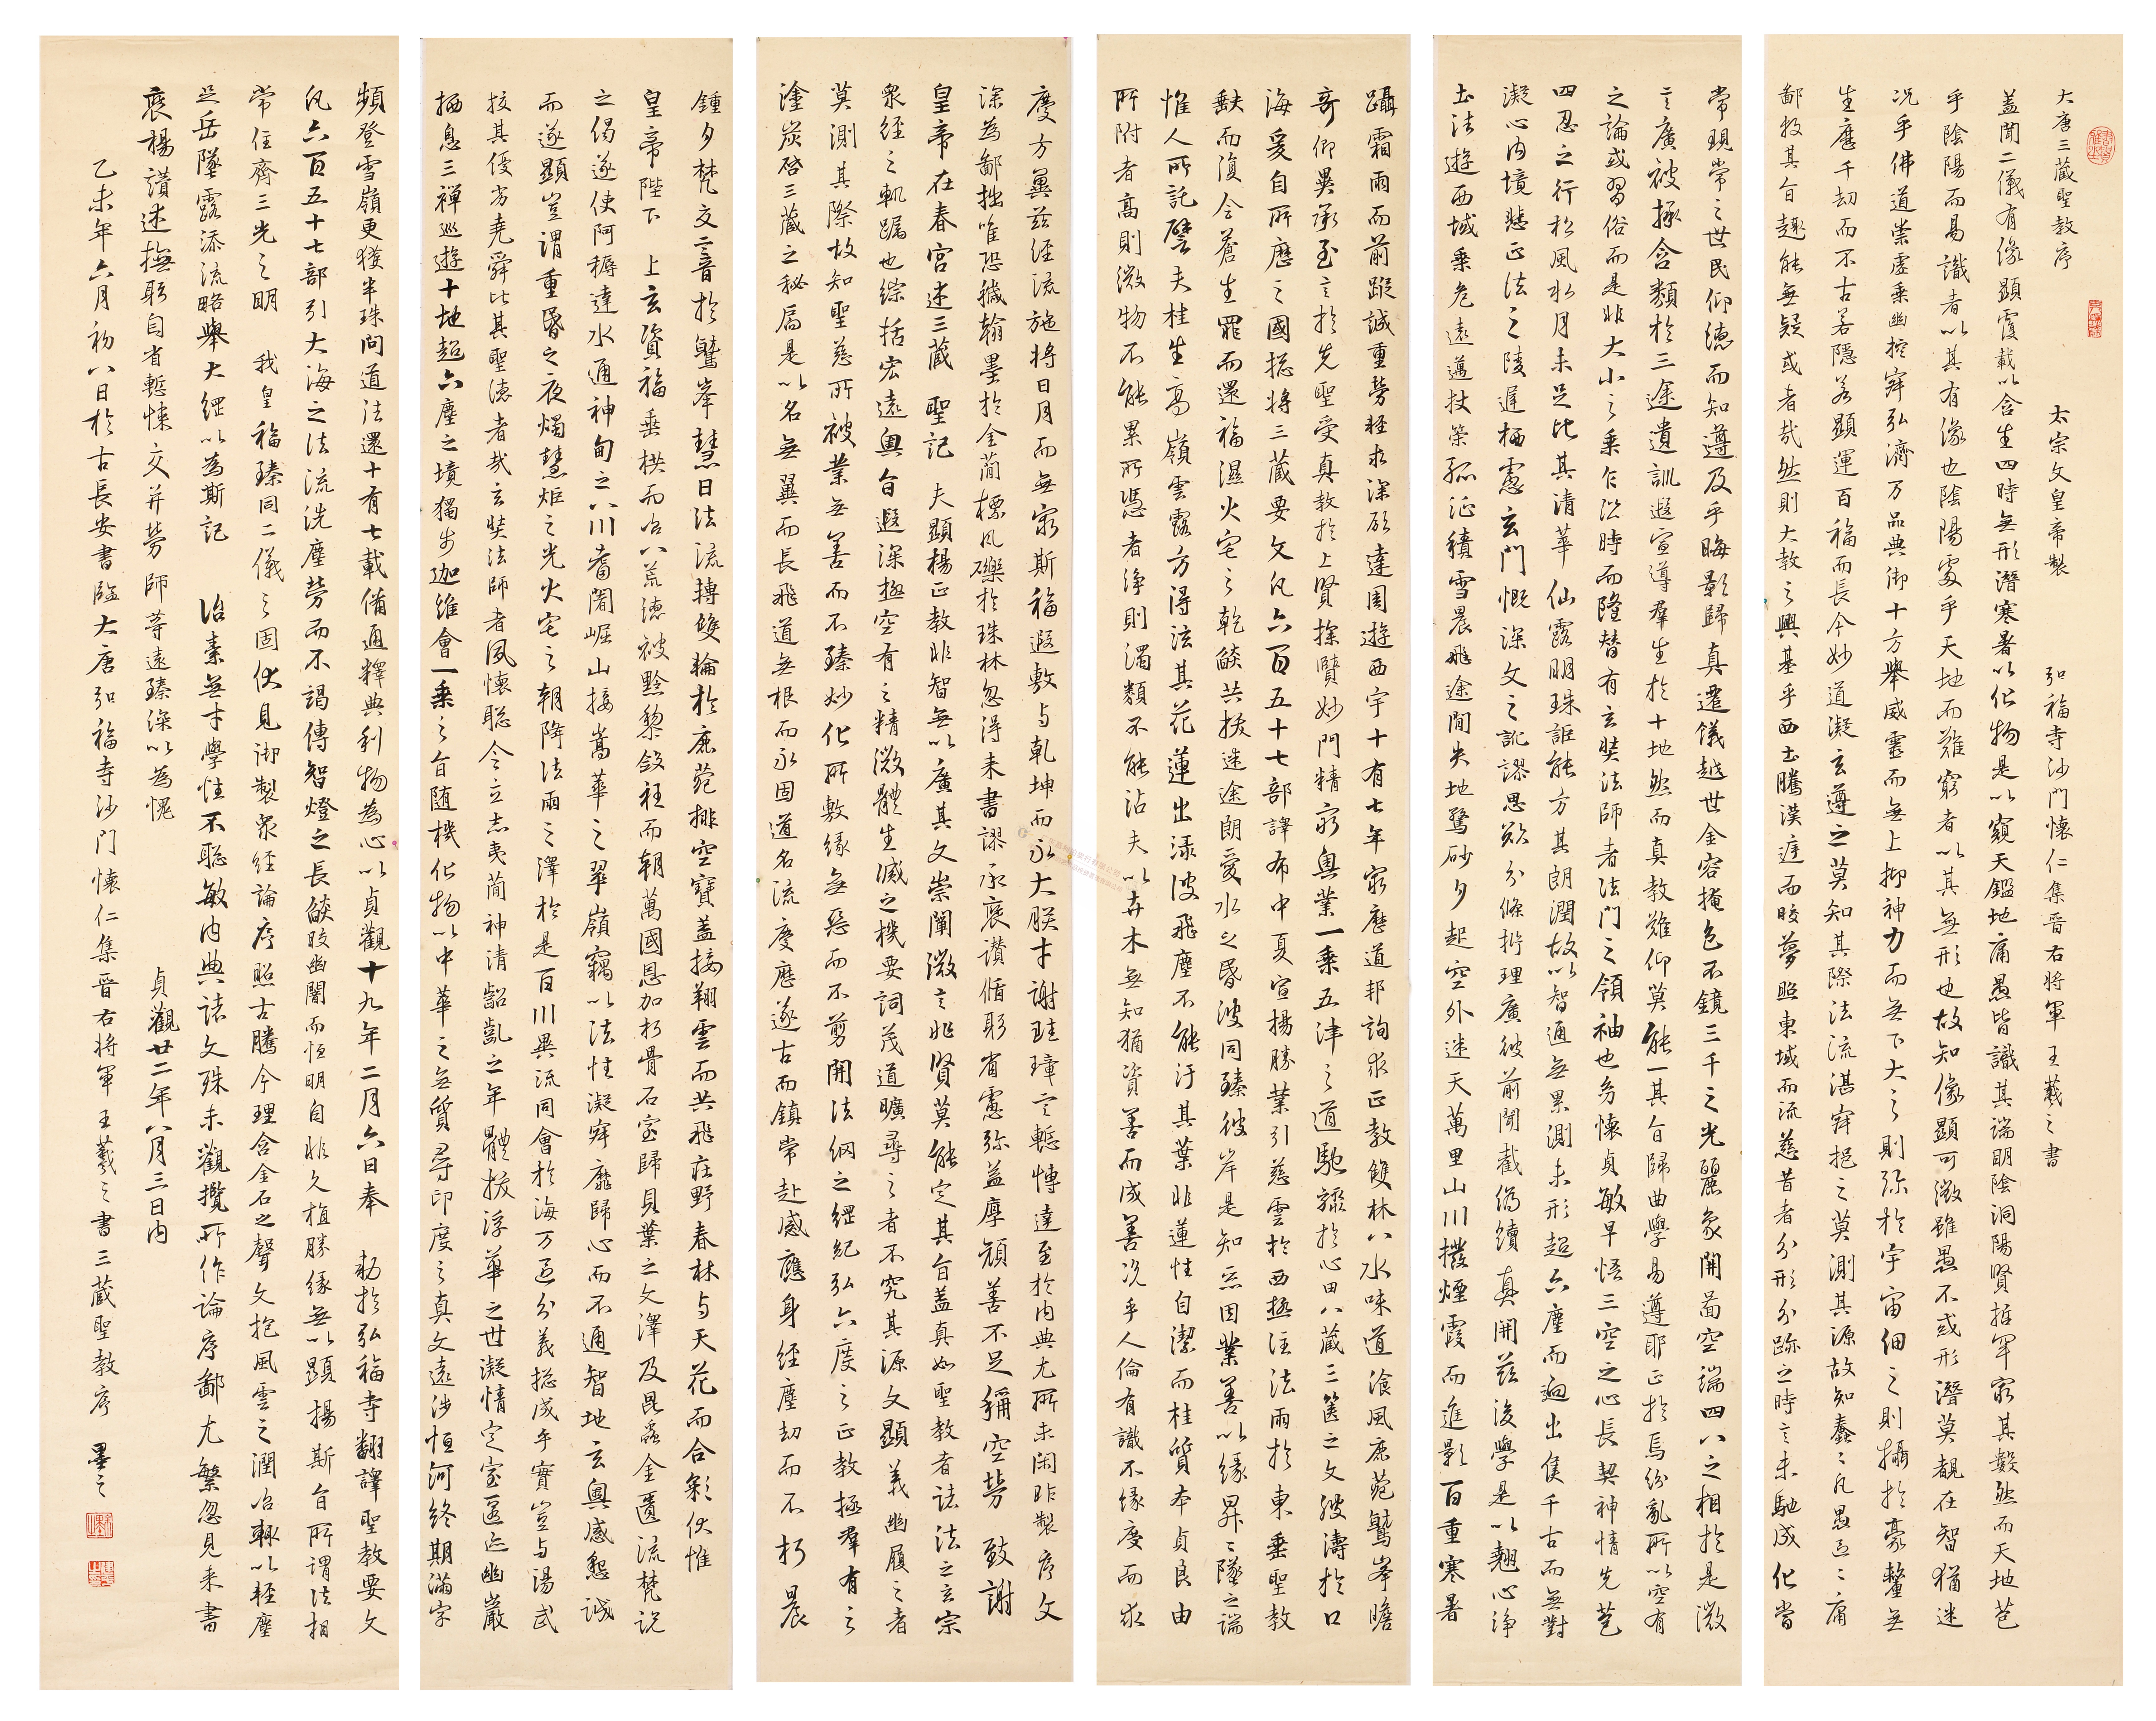 大唐三藏聖教序
太宗文皇帝製 弘福寺沙門懷仁集晉右將軍王羲之書
蓋聞二儀有像顯覆載以含生四時無形潛寒暑以化物是以窺天鑑地庸愚皆識其端明陰洞陽賢哲罕窮其數然而天地苞
乎陰陽而易識者以其有像也陰陽處乎天地而難窮者以其無形也故知像顯可徵雖愚不惑形潛莫覩在智猶迷
況乎佛道崇虛乘幽控寂弘濟万品典御十方舉威靈而無上抑神力而無下大之則弥於宇宙細之則攝於豪釐無
生歷千劫而不古若隱若顯運百福而長今妙道凝玄遵之莫知其際法流湛寂挹之莫測其源故知蠢〻凡愚區〻庸
鄙投其旨趣能無疑或者哉然則大教之興基乎西土騰漢庭而皎夢照東域而流慈昔者分形分跡之時言未馳成化當
常現常之世民仰德而知遵及乎晦影歸真遷儀越世金容掩色不鏡三千之光麗象開圖空端四八之相於是微
言廣被拯含類於三途遺訓遐宣導群生於十地然而真教難仰莫能一其旨歸曲學易遵耶正於焉紛亂所以空有
之論或習俗而是非大小之乘乍沿時而隆替有玄奘法師者法門之領袖也幼懷貞敏早悟三空之心長契神情先苞
四忍之行松風水月未足比其清華仙露明珠詎能方其朗潤故以智通無累測未形超六塵而迥出隻千古而無對
凝心內境悲正法之陵遲栖慮玄門慨深文之訛謬思欲分條析理廣彼前聞截偽續真開茲後學是以翹心淨
土法遊西域乘危遠邁杖策孤征積雪晨飛途間失地驚砂夕起空外迷天萬里山川撥煙霞而進影百重寒暑
躡霜雨而前蹤誠重勞輕求深願達周遊西宇十有七年窮歷道邦詢求正教雙林八水味道湌風鹿菀鷲峯瞻
奇仰異承至言於先聖受真教於上賢探賾妙門精窮奧業一乘五津之道馳驟於心田八藏三篋之文波濤於口
海爰自所歷之國揔將三藏要文凡六百五十七部譯布中夏宣揚勝業引慈雲於西極注法雨於東垂聖教
缺而復全蒼生罪而還福濕火宅之乾燄共拔迷途朗愛水之昏波同臻彼岸是知惡因業善以緣昇〻墜之端
惟人所託譬夫桂生高嶺雲露方得泫其花蓮出淥波飛塵不能汙其葉非蓮性自潔而桂質本貞良由
所附者高則微物不能累所憑者淨則濁類不能沾夫以卉木無知猶資善而成善況乎人倫有識不緣慶而求
慶方冀茲經流施將日月而無窮斯福遐敷与乾坤而永大朕才謝珪璋言慙博達至於內典尤所未閑昨製序文
深為鄙拙唯恐穢翰墨於金簡標瓦礫於珠林忽得來書謬承褒讚循躬省慮弥益厚顏善不足稱空勞 致謝
皇帝在春宮述三藏 聖記 夫顯揚正教非智無以廣其文崇闡微言非賢莫能定其旨蓋真如聖教者諸法之玄宗
眾經之軌躅也綜括宏遠奧旨遐深極空有之精微體生滅之機要詞茂道曠尋之者不究其源文顯義幽履之者
莫測其際故知聖慈所被業無善而不臻妙化所敷緣無惡而不剪開法網之綱紀弘六度之正教拯群有之
塗炭啓三藏之秘扃是以名無翼而長飛道無根而永固道名流慶歷遂古而鎮常赴感應身經塵劫而不朽晨
鍾夕梵交二音於鷲峯慧日法流轉雙輪於鹿菀排空寶蓋接翔雲而共飛莊野春林与天花而合彩伏惟
皇帝陛下 上玄資福垂拱而治八荒德被黔黎斂衽而朝萬國恩加朽骨石室歸貝葉之文澤及昆蟲金匱流梵說
之偈遂使阿耨達水通神甸之八川耆闍崛山接嵩華之翠嶺竊以法性凝寂靡歸心而不通智地玄奧感懇誠
而遂顯豈謂重昏之夜燭慧炬之光火宅之朝降法雨之澤於是百川異流同會於海万區分義揔成乎實豈与湯武
校其優劣堯舜比其聖德者哉玄奘法師者夙懷聰令立志夷簡神清齠齔之年體拔浮華之世凝情定室匿跡幽巖
栖息三禪巡遊十地超六塵之境獨步迦維會一乘之旨隨機化物以中華之無質尋印度之真文遠涉恒河終期滿字
頻登雪嶺更獲半珠問道法還十有七載備通釋典利物為心以貞觀十九年二月六日奉 勅於弘福寺翻譯聖教要文
凡六百五十七部引大海之法流洗塵勞而不竭傳智燈之長燄皎幽闇而恒明自非久植勝緣無以顯揚斯旨所謂法相
常住齊三光之明 我皇福臻同二儀之固伏見御製眾經論序照古騰今理含金石之聲文抱風雲之潤治輒以輕塵
足岳墜露添流略舉大綱以為斯記 治素無才學性不聰敏內典諸文殊未觀攬所作論序鄙尤繁忽見來書
褒揚讚述撫躬自省慙悚交并勞師等遠臻深以為愧 貞觀廿二年八月三日內
乙未年六月初八日於古長安書臨大唐弘福寺沙門懷仁集晉右將軍王羲之書三藏聖教序 墨之